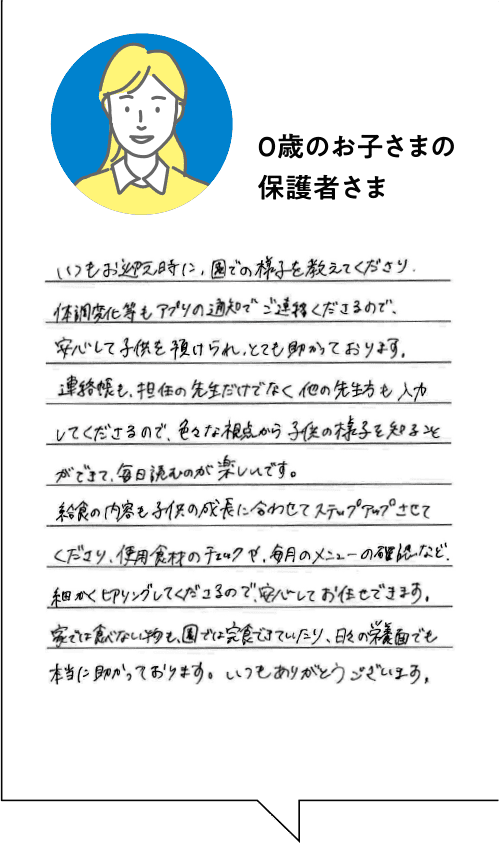 0歳のお子さまの
保護者さま
いつもお迎え時に、園での様子を教えてくださり、
体調変化等もアプリの通知でご連絡くださるので、
安心して子供を預けられ、とても助かっております。
連絡帳も、担任の先生だけでなく他の先生方も入力
してくださるので、色々な視点から子供の様子を知ること
ができて、毎日読むのが楽しいです。
給食の内容も子供の成長に合わせてステップアップさせて
くださり、使用食材のチェックや、毎月のメニューの確認など、
細かくヒアリングしてくださるので、安心してお任せできます。
家では食べない物も、園では完食できていたり、日々の栄養面でも
本当に助かっております。いつもありがとうございます。